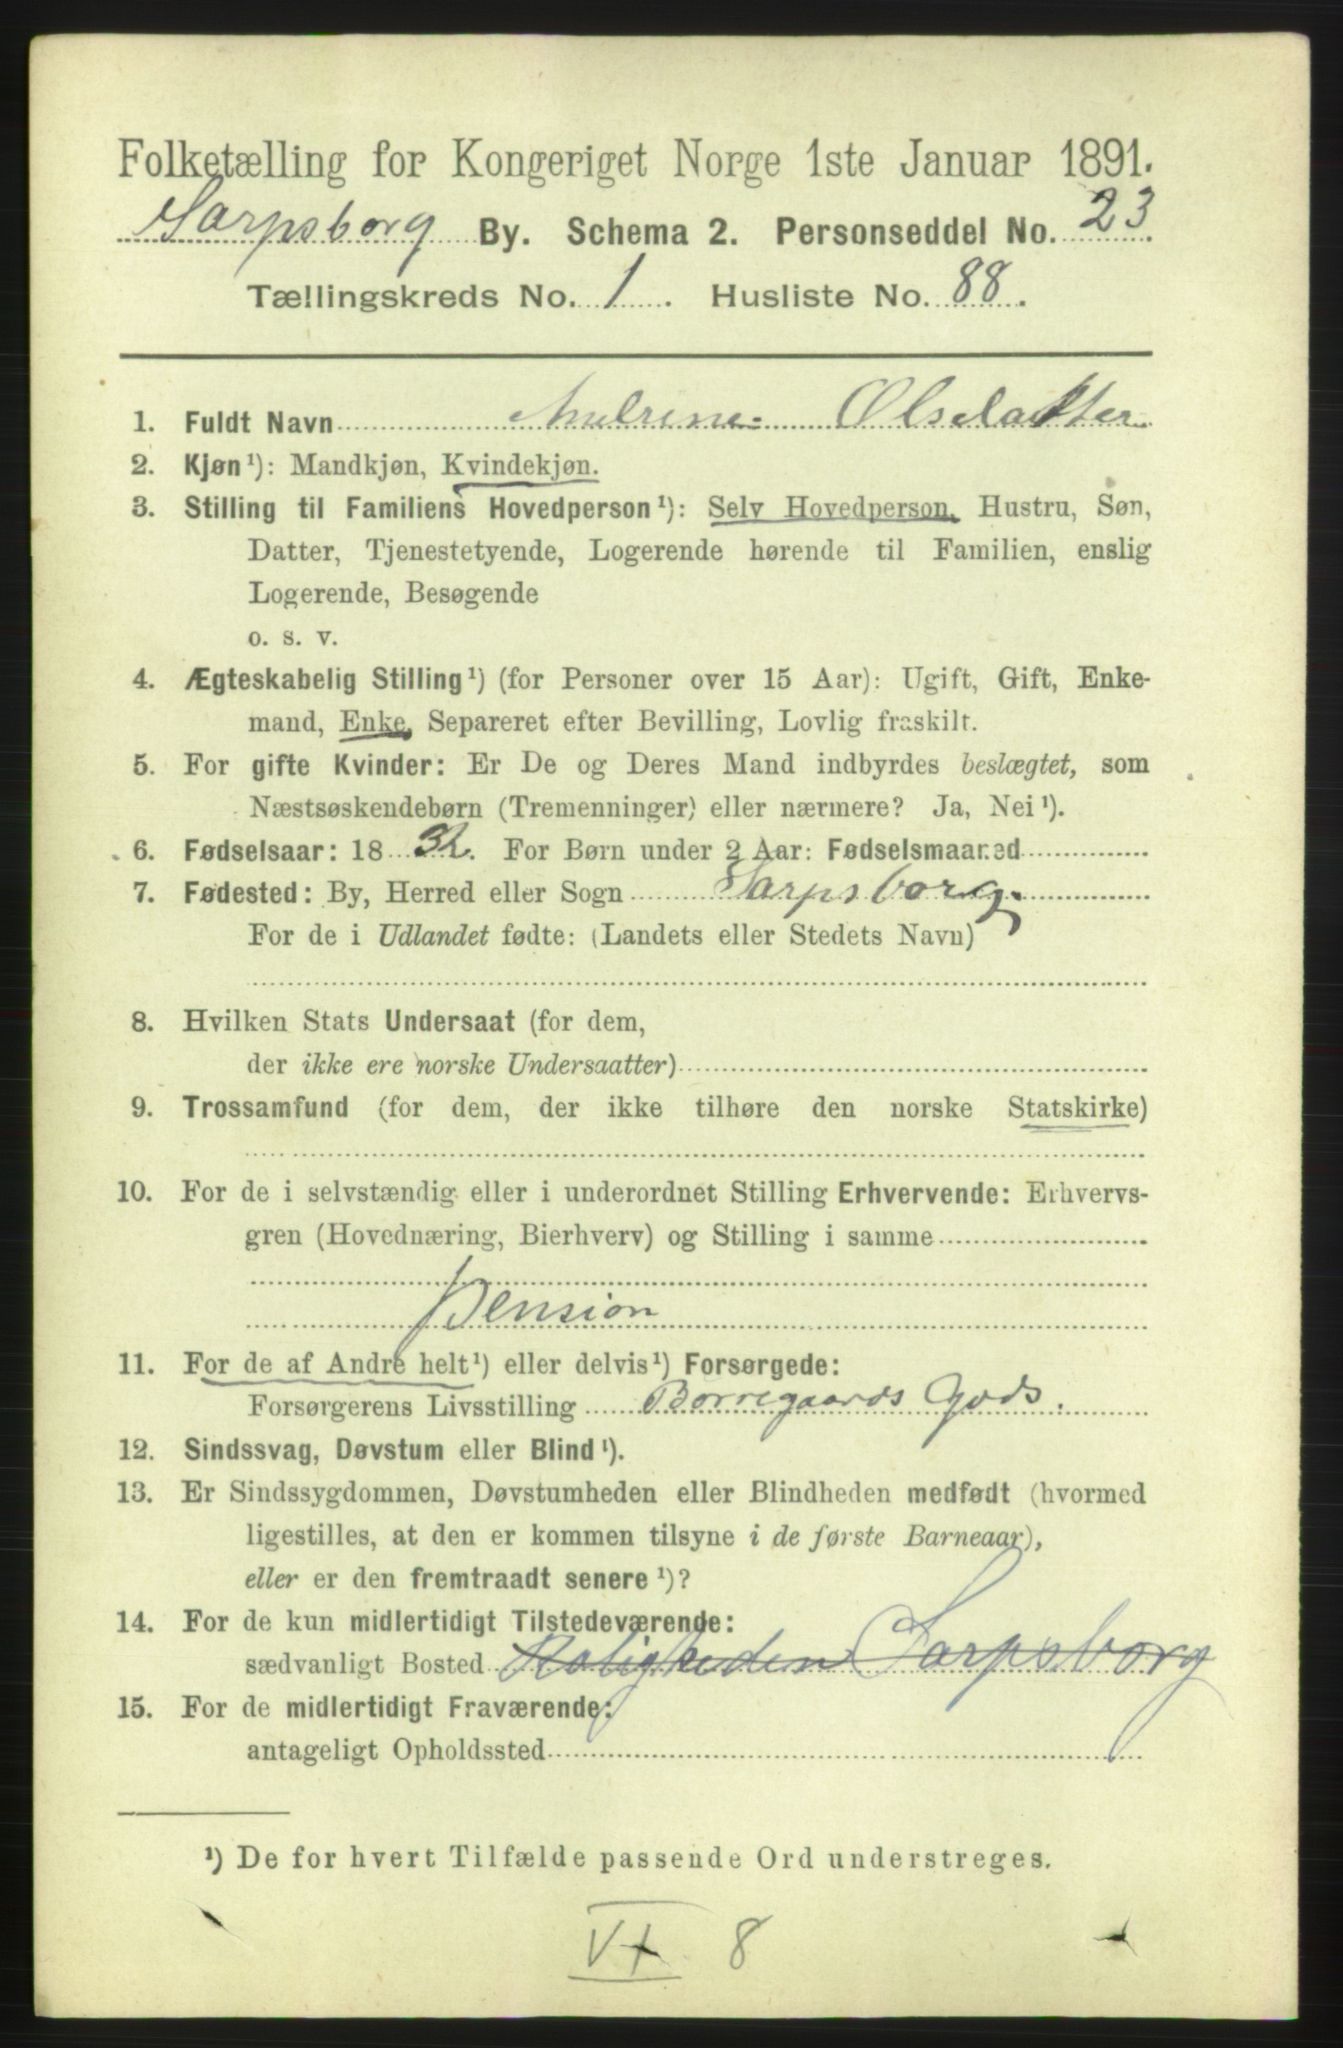 Folketælling for Kongeriget Norge 1ste Januar 1891.
Sarpsborg By. Schema 2. Personseddel No. 23
Tællingskreds No. 1. Husliste No. 88.
1. Fuldt Navn Andrine Olsdatter
2. Kjøn¹): Mandkjøn, Kvindekjøn.
3. Stilling til Familiens Hovedperson¹): Selv Hovedperson, Hustru, Søn,
Datter, Tjenestetyende, Logerende hørende til Familien, enslig
Logerende, Besøgende
o. s. v.
4. Ægteskabelig Stilling¹) (for Personer over 15 Aar): Ugift, Gift, Enke-
mand, Enke, Separeret efter Bevilling, Lovlig fraskilt.
5. For gifte Kvinder: Er De og Deres Mand indbyrdes beslægtet, som
Næstsøskendebørn (Tremenninger) eller nærmere? Ja, Nei¹).
6. Fødselsaar: 1832. For Børn under 2 Aar: Fødselsmaaned
7. Fødested: By, Herred eller Sogn Sarpsborg.
For de i Udlandet fødte: (Landets eller Stedets Navn)
8. Hvilken Stats Undersaat (for dem,
der ikke ere norske Undersaatter)
9. Trossamfund (for dem, der ikke tilhøre den norske Statskirke)
10. For de i selvstændig eller i underordnet Stilling Erhvervende: Erhvervs-
gren (Hovednæring, Bierhverv) og Stilling i samme
Pension
11. For de af Andre helt¹) eller delvis¹) Forsørgede:
Forsørgerens Livsstilling Borregaards Gods.
12. Sindssvag, Døvstum eller Blind¹).
13. Er Sindssygdommen, Døvstumheden eller Blindheden medfødt (hvormed
ligestilles, at den er kommen tilsyne i de første Barneaar),
eller er den fremtraadt senere¹)?
14. For de kun midlertidigt Tilstedeværende:
sædvanligt Bosted Roligheden Sarpsborg
15. For de midlertidigt Fraværende:
antageligt Opholdssted
¹) De for hvert Tilfælde passende Ord understreges.
8